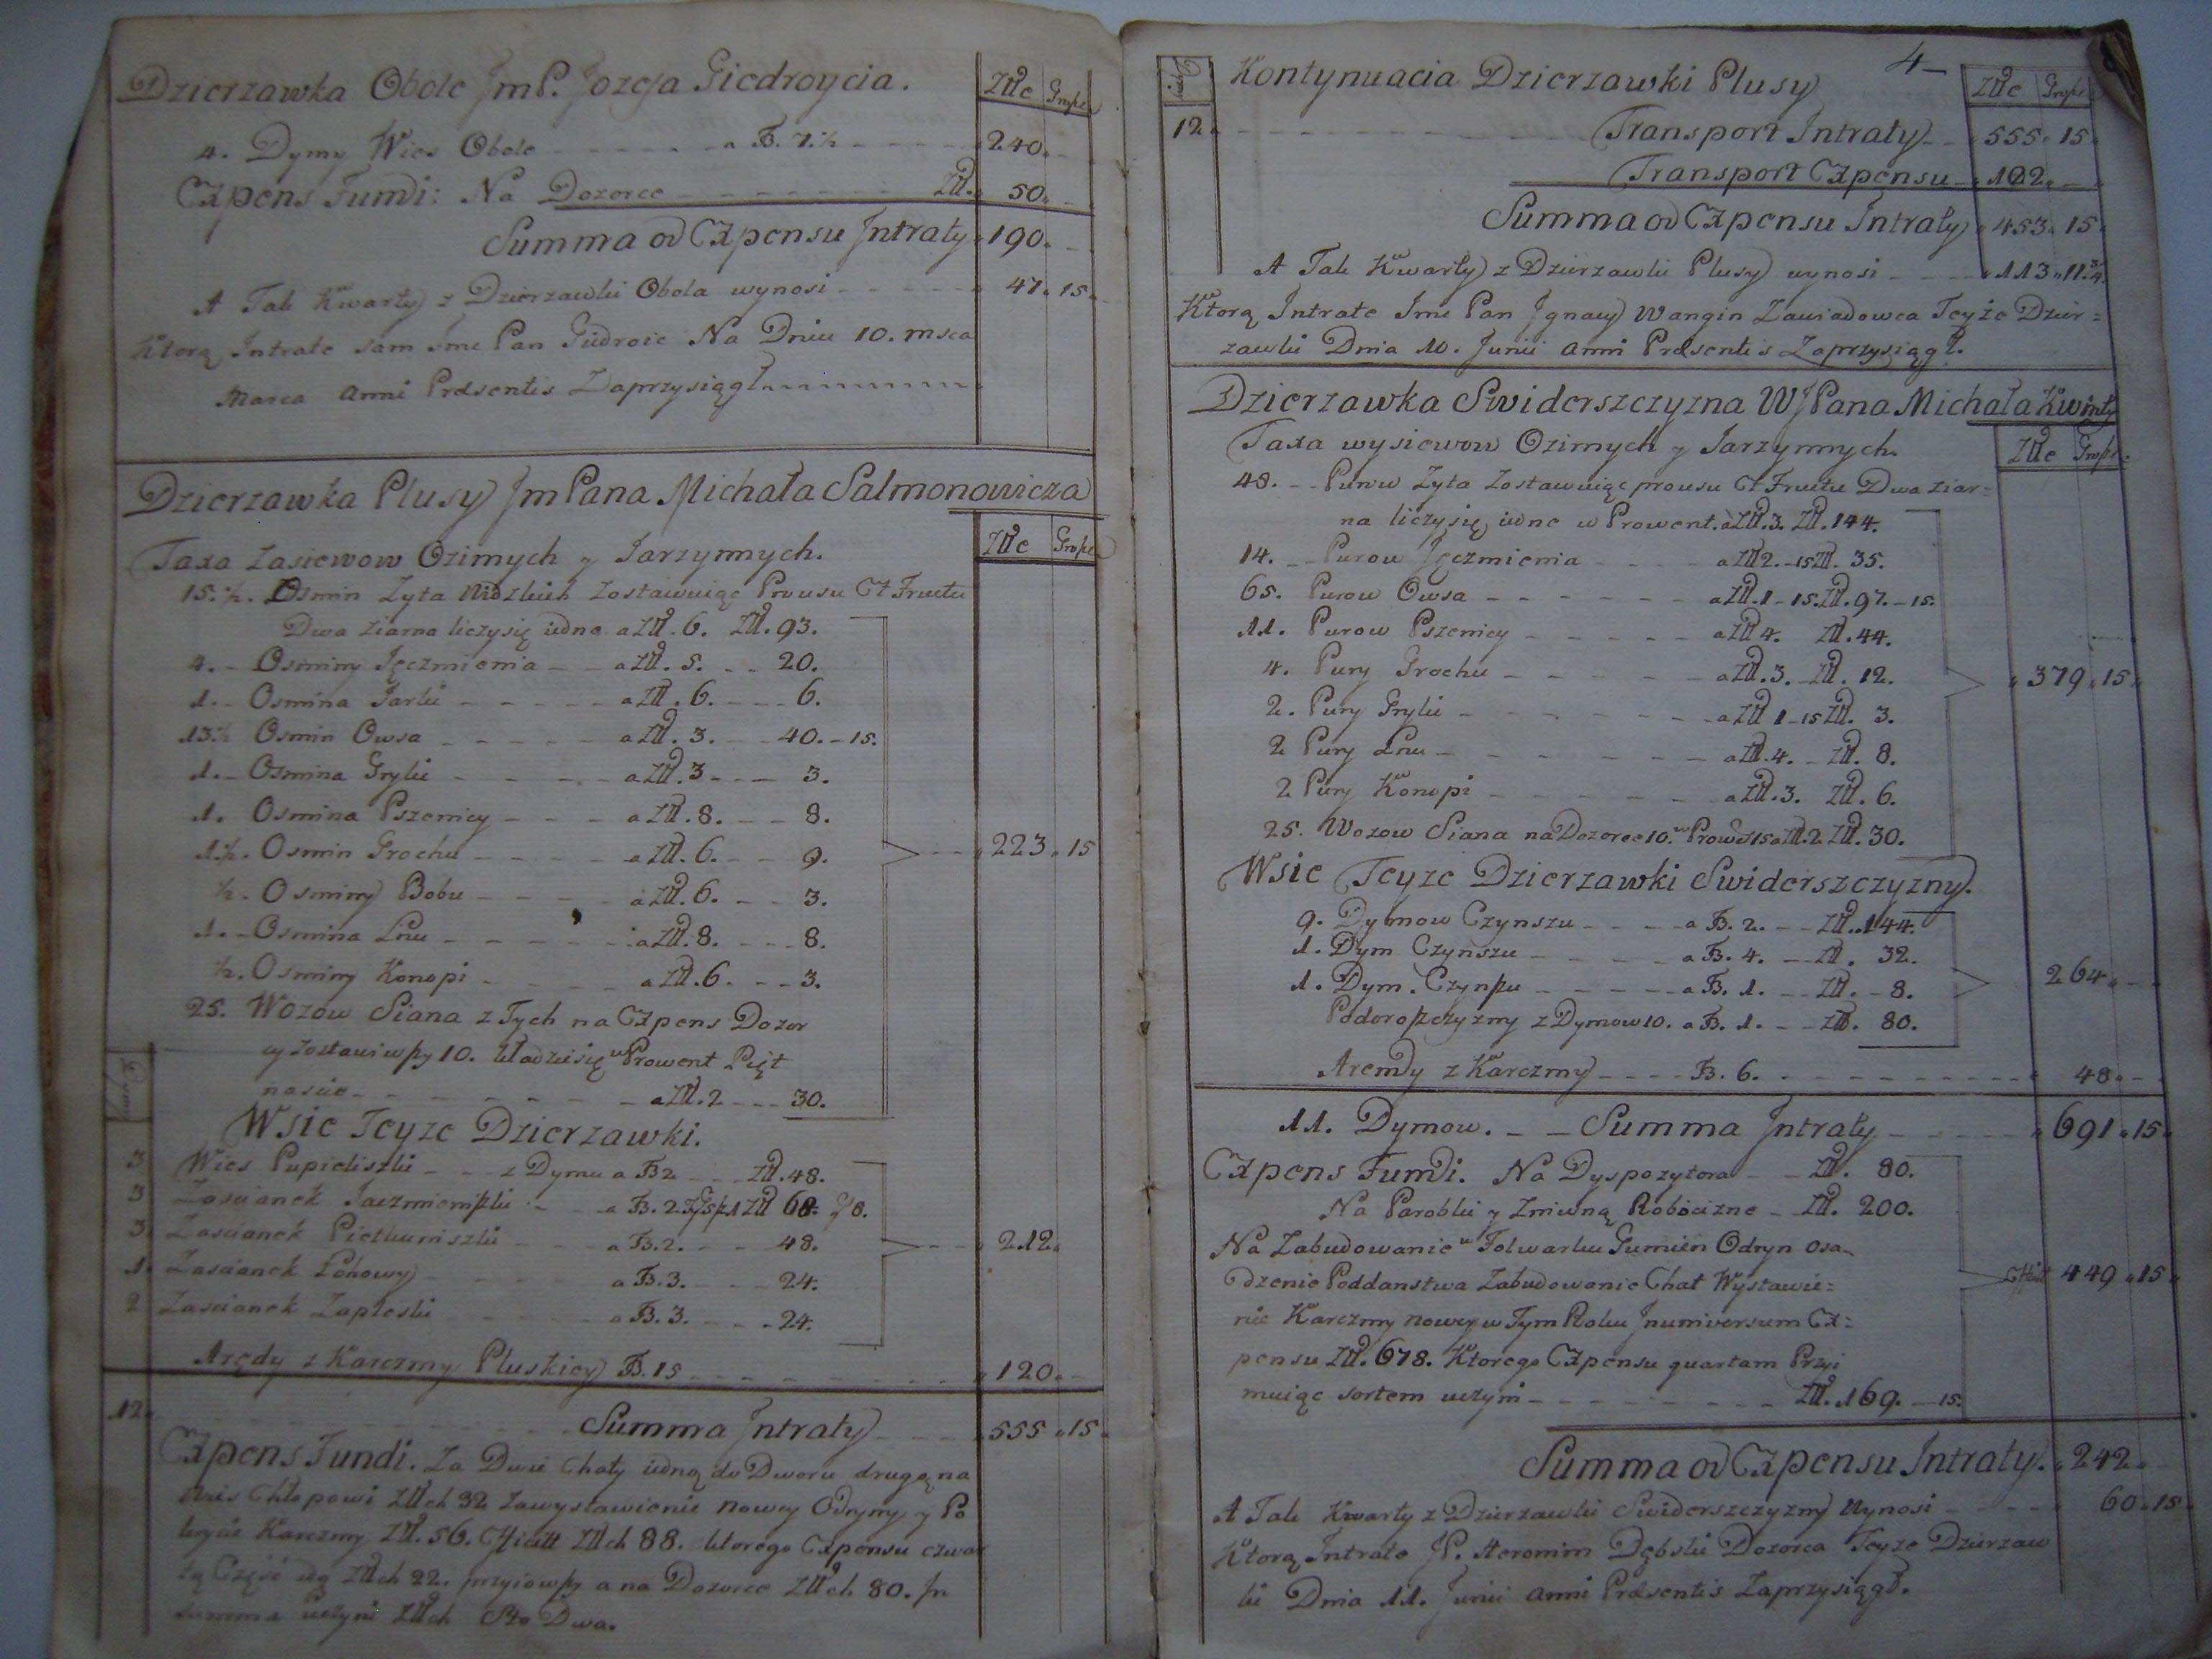 Dzierzawka Obole JmP. Jozefa Giedroycia.
Złłe Grosze
4. Dymy Wies Obole a B. 7.½ 240.
Expens Fundi: Na Dozorce Złł. 50.
Summa od Expensu Intraty 190.
A Tak Kwarty z Dzierzawki Obola wynosi 47. 15.
Ktorą Intratę sam Jme Pan Giedroic Na Dniu 10. msca
Marca Anni Præsentis Zaprzysiągł
Dzierzawka Plusy JmPana Michała Salmonowicza
Złłe Grosze
Taxa Zasiewow Ozimych y Jarzynnych.
15.½. Osmin Zyta Nidzkich Zostawuiąc Prousu Et Fructu
Dwa ziarna liczysię iedno a Złł. 6. Złł. 93.
4. Osminy Jęczmienia a Złł. 5. 20.
1. Osmina Jarki a Złł. 6. 6.
13.½ Osmin Owsa a Złł. 3. 40. - 15.
1. Osmina Gryki a Złł. 3 3.
1. Osmina Pszenicy a Złł. 8. 8.
1.½. Osmin Grochu a Złł. 6. 9.
223. 15
½. Osminy Bobu a Złł. 6. 3.
1. Osmina Lnu a Złł. 8. 8.
½. Osminy Konopi a Złł. 6. 3.
25. Wozow Siana z Tych na Expens Dozor
cy zostawiwszy 10. kładziesię w Prowent Pięt
nascie a Złł. 2 30.
Wsie Teyze Dzierzawki.
3 Wies Pupieliszki z Dymu a B 2 Złł. 48.
3 Zascianek Jaczmieniszki a B. 2. Złł 68.
3. Zascianek Pietkuniszki a B. 2. 48.
212.
1. Zascianek Łohowy a B. 3. 24.
2 Zascianek Zapleski a B. 3. 24.
Arędy z Karczmy Pluskiey B. 15 120.
12. Summa Intraty 555. 15.
Expens Fundi. Za Dwie Chaty iedną do Dworu drugą na
Wsi Chłopowi Złłch 32 Zawystawienie nowey Odryny y Po
krycie Karczmy Złł. 56. Efficitt Złłch 88. ktorego Expensu czwar
tą Częsc idą Złłch 22. przyiowszy a na Dozorce Złłch 80. In
summa uczyni Złłch Sto Dwa.
4
Dymy
Kontynuacia Dzierzawki Plusy
Złłe Grosze
12. Transport Intraty 555. 15.
Transport Expensu 102.
Summa od Expensu Intraty 453. 15.
A Tak Kwarty z Dzierzawki Plusy wynosi 113. 11.¾.
Ktorą Intratę Jme Pan Ignacy Wangin Zawiadowca Teyże Dzier=
zawki Dnia 10. Junii Anni Præsentis Zaprzysiągł.
Dzierzawka Swiderszczyzna WJPana Michała Kwinty
Taxa wysiewow Ozimych y Jarzynnych.
Złłe Grosze
48. Purow Zyta Zostawuiąc prousu Et Fructu Dwa ziar=
na liczysię iedne w Prowent. a Złł. 3. Złł. 144.
14. Purow Jęczmienia a Złł 2. - 15 Złł. 35.
65. Purow Owsa a Złł. 1 - 15. Złł. 97. - 15.
11. Purow Pszenicy a Złł 4. Złł. 44.
4. Pury Grochu a Złł. 3. Złł. 12.
379. 15.
2. Pury Gryki a Złł 1 - 15 Złł. 3.
2 Pury Lnu a Złł. 4. Złł. 8.
2 Pury Konopi a Złł. 3. Złł. 6.
25. Wozow Siana na Dozorce 10. w Prowent 15 a Złł. 2 Złł. 30.
Wsie Teyze Dzierzawki Swiderszczyzny.
9. Dymow Czynszu a B. 2. Złł. 144.
1. Dym Czynszu a B. 4. Złł. 32.
264.
1. Dym. Czynszu a B. 1. Złł. 8.
Podoroszczyzny z Dymow 10. a B. 1. Złł. 80.
Arendy z Karczmy B. 6. 48.
11. Dymow. Summa Intraty 691. 15.
Expens Fundi. Na Dyspozytora Złł. 80.
Na Parobki y Zniwną Robociznę Złł. 200.
Na Zabudowanie w Folwarku Gumien Odryn osa=
dzenie Poddanstwa Zabudowanie Chat Wystawie=
449. 15.
nie Karczmy nowey w Tym Roku Inuniversum Ex=
pensu Złł. 678. Ktorego Expensu quartam Przyi
muiąc sortem uczyni Złł. 169. - 15.
Summa od Expensu Intraty. 242.
A Tak Kwarty z Dzierzawki Swiderszczyzny Wynosi 60. 15.
Ktorą Intratę JP. Heronim Dębski Dozorca Teyze Dzierzaw
ki Dnia 11. Junii Anni Præsentis Zaprzysiągł.